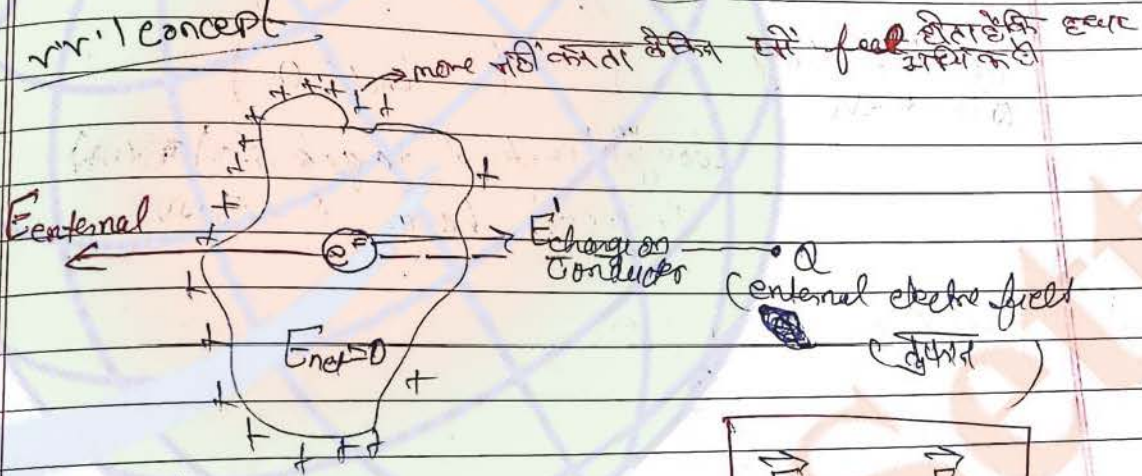 v.v.1 concept
→ move नहीं करता लेकिन हमें feel होता है कि
E external
e⁻
E' charge on
Conductor
Q
(external electric field
तूफान )
Enet=0